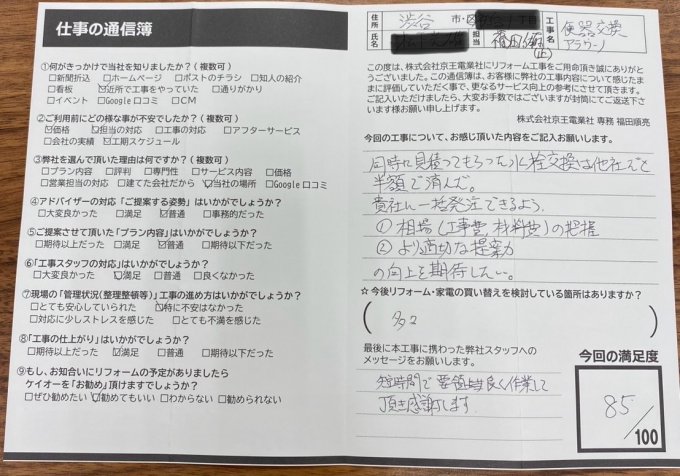 仕事の通信簿
①何がきっかけで当社を知りましたか？(複数可)
□新聞折込 □ホームページ □ポストのチラシ □知人の紹介
□看板 ☑近所で工事をやっていた □通りがかり
□イベント □Google口コミ □CM
②ご利用前にどの様な事が不安でしたか？(複数可)
☑価格 ☑担当の対応 □工事の対応 □アフターサービス
□会社の実績 ☑工期スケジュール
③弊社を選んで頂いた理由は何ですか？(複数可)
□プラン内容 □評判 □専門性 □サービス内容 □価格
□営業担当の対応 □建てた会社だから ☑当社の場所 □Google口コミ
④アドバイザーの対応「ご提案する姿勢」はいかがでしょうか？
□大変良かった □満足 ☑普通 □事務的だった
⑤ご提案させて頂いた「プラン内容」はいかがでしょうか？
□期待以上だった □満足 ☑普通 □期待以下だった
⑥「工事スタッフの対応」はいかがでしょうか？
□大変良かった ☑満足 □普通 □良くなかった
⑦現場の「管理状況(整理整頓等)」工事の進め方はいかがでしょうか？
□とても安心していられた ☑特に不安はなかった
□対応に少しストレスを感じた □とても不満を感じた
⑧「工事の仕上がり」はいかがでしょうか？
□期待以上だった ☑満足 □普通 □期待以下だった
⑨もし、お知合いにリフォームの予定がありましたら
ケイオーを「お勧め」頂けますでしょうか？
□ぜひ勧めたい ☑勧めてもいい □わからない □勧められない
住所 渋谷 市・区
氏名 担当 福田 工事名 便器交換
アラウーノ
この度は、株式会社京王電業社にリフォーム工事をご用命頂き誠にありがとう
ございました。この通信簿は、お客様に弊社の工事内容について感じたま
まに評価していただく事で、更なるサービス向上の参考にさせて頂きます。
ご記入いただけましたら、大変お手数ではございますが封筒にてご返送下さ
います様お願い申し上げます。
株式会社京王電業社 専務 福田順亮
今回の工事について、お感じ頂いた内容をご記入お願いします。
同時に見積ってもらった水栓交換は他社で
半額で済んだ。
貴社に一括発注できるよう、
①相場(工事費、材料費)の把握
②より適切な提案力
の向上を期待したい。
☆今後リフォーム・家電の買い替えを検討している箇所はありますか？
(多々)
最後に本工事に携わった弊社スタッフへの
メッセージをお願いします。
短時間で要領良く作業して
頂き感謝します。
今回の満足度
85/100